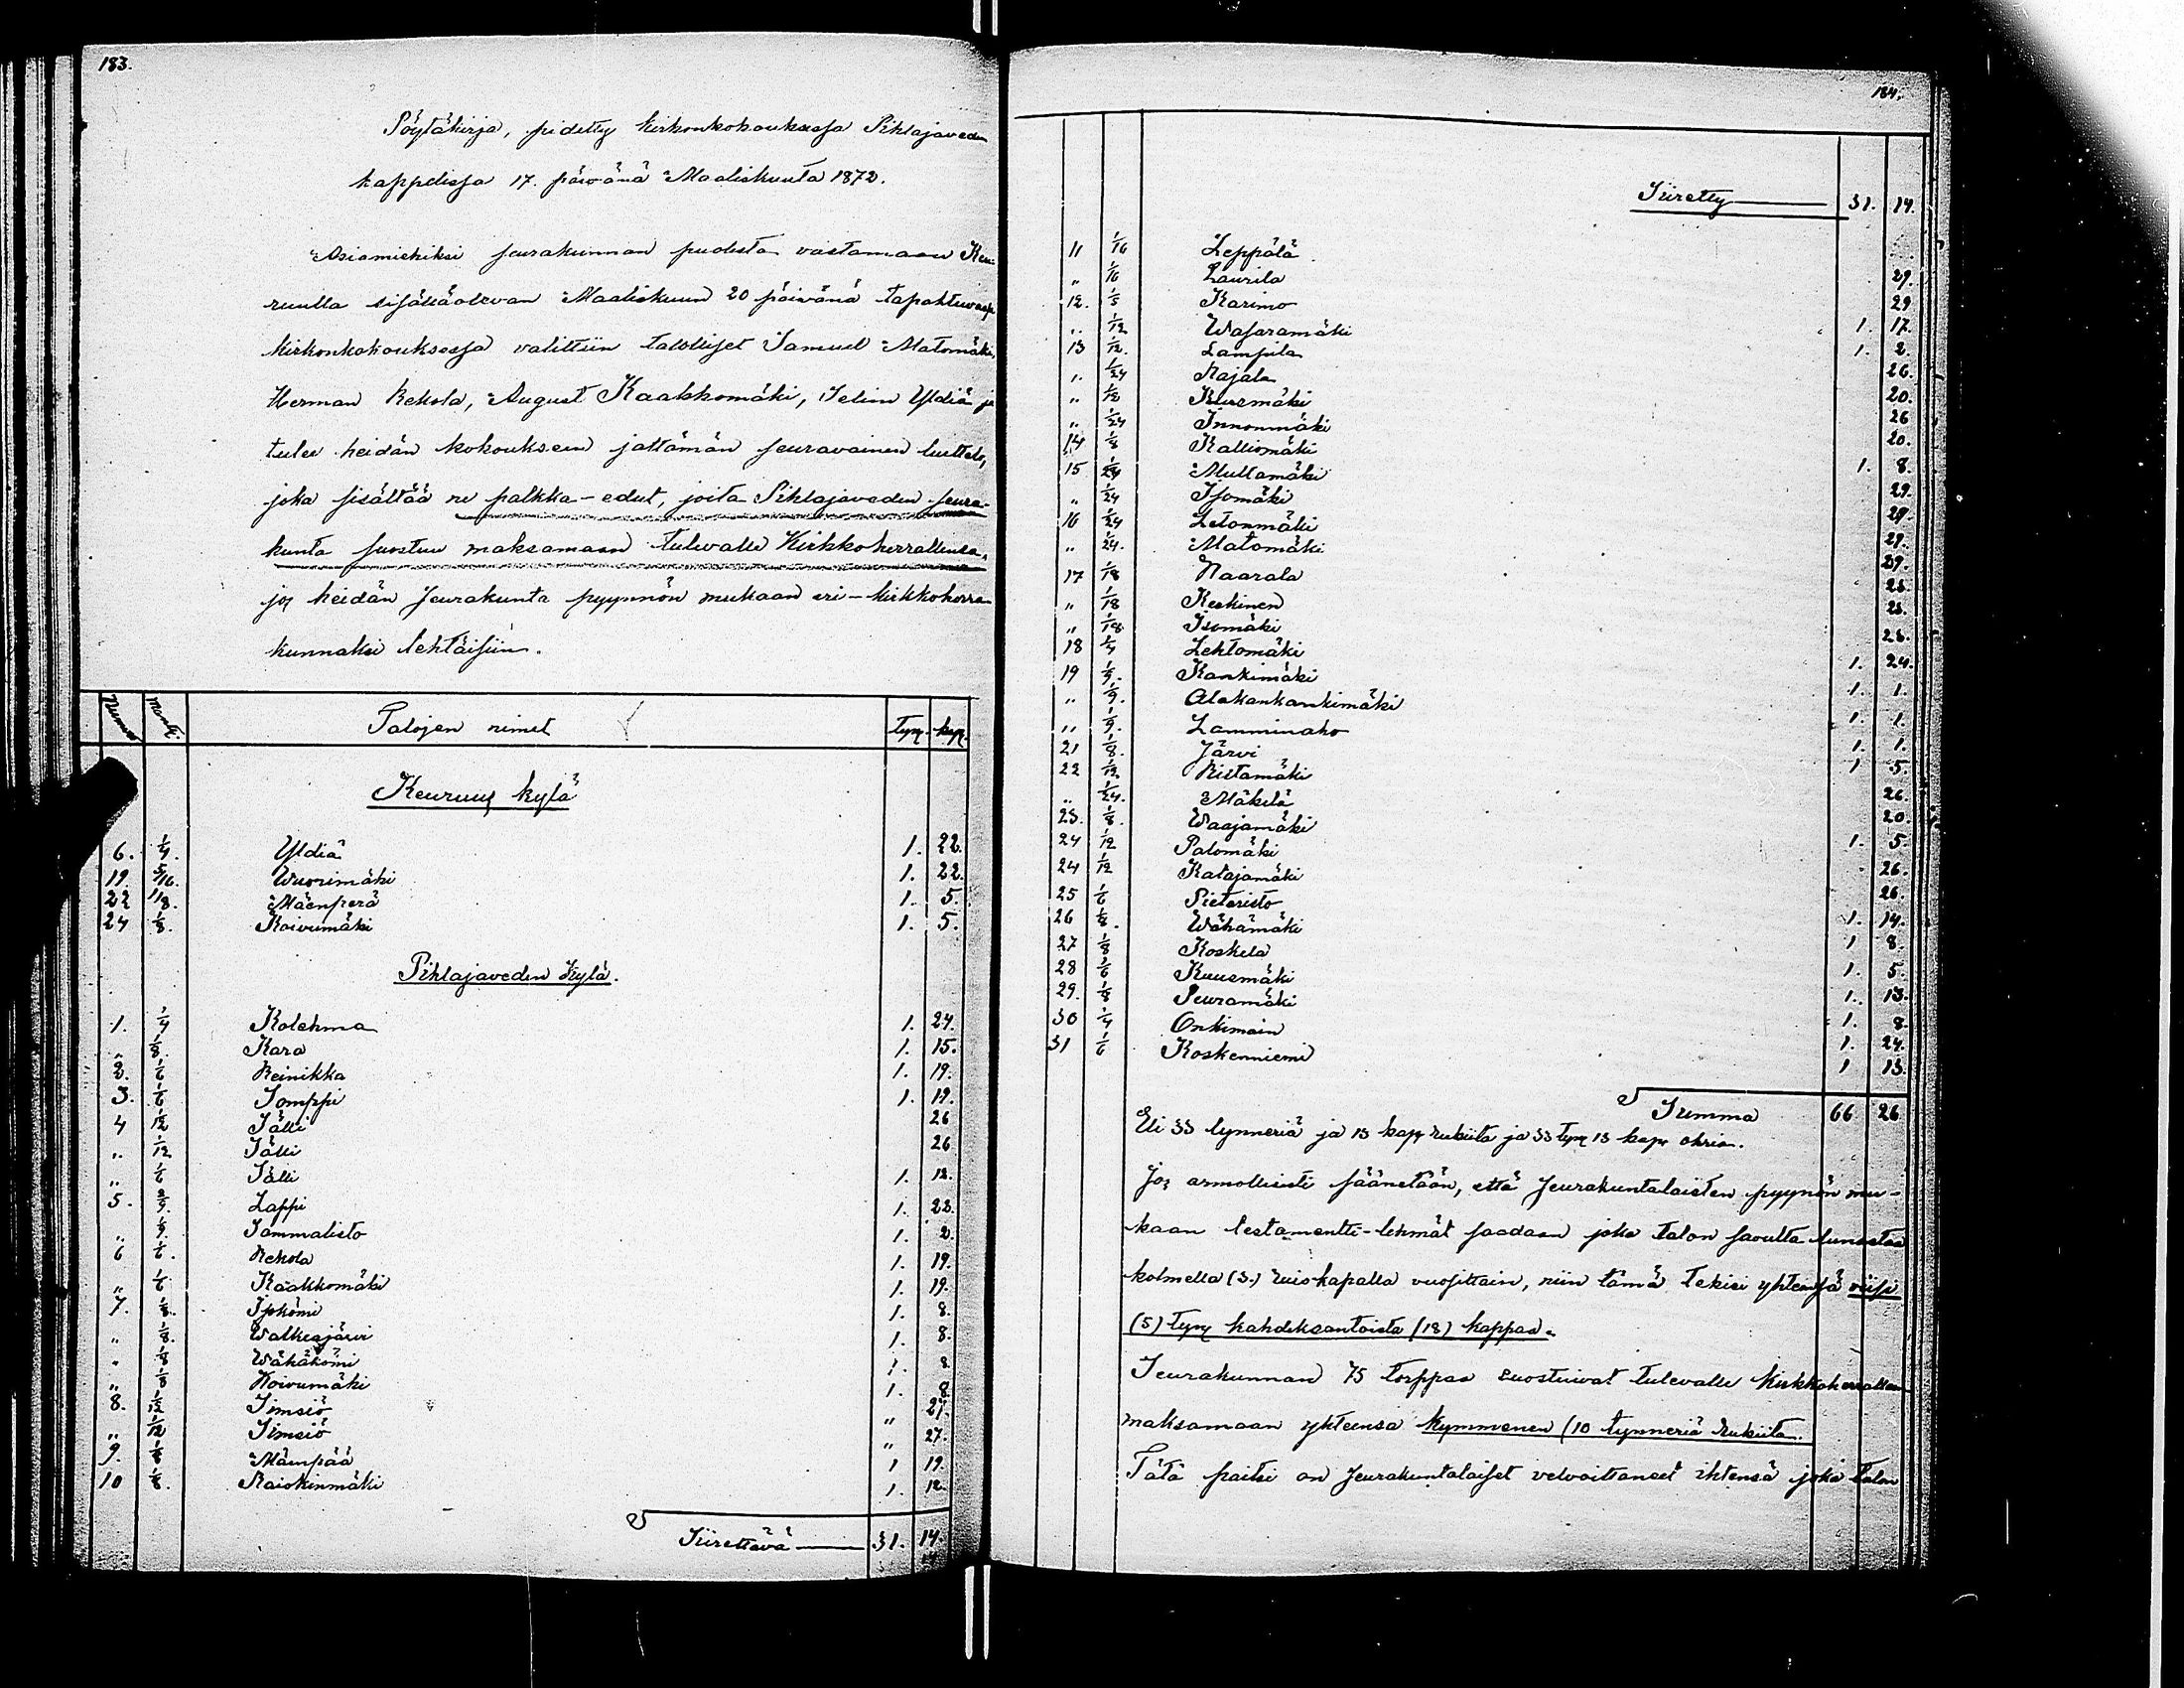 183.
Pöytäkirja, pidetty kirkonkokouksessa Pihlajaveden
kappelissa 17. päivänä Maaliskuuta 1872.
Asiamiehiksi seurakunnan puolesta vastamaan Keu-
ruulla sisälläolevan Maaliskuun 20 päivänä tapahtuvassa
kirkonkokouksessa valittiin talolliset Samuel Matomäki,
Herman Rekola, August Kaakkomäki, Selim Yldiä ja
tulee heidän kokoukseen jättämän seuravainen luettelo,
joka sisältää ne palkka-edut, joita Pihlajaveden seura-
kunta suostuu maksamaan tulevalle Kirkkoherrallensa,
jos heidän seurakunta pyynnön mukaan eri-kirkkoherra-
kunnaksi tehtäisiin.
Numero Mantt. Talojen nimet tyn. kap.
Keuruus kylä
6. 1/4. Yldiä 1. 22.
19. 5/16. Wuorimäki 1. 22.
22 1/8. Mäenperä 1. 5.
24 1/8. Koivumäki 1. 5.
Pihlajaveden Kylä.
1. 1/4 Kolehma 1. 24.
„ 1/8. Kara 1. 15.
2. 1/6 Reinikka 1. 19.
3. 1/6 Jomppi 1. 19.
4 1/12 Jälli 26
„ 1/12 Jälli 26
„ 1/6 Jälli 1. 12.
5. 2/9. Lappi 1. 22.
„ 1/9. Sammalisto 1. 2.
6 1/6. Rekola 1. 19.
„ 1/6 Kaakkomäki 1. 19.
7. 1/8. Isokömi 1. 8.
„ 1/8. Walkeajärvi 1. 8.
„ 1/8 Wähäkömi 1. 8.
„ 1/8 Koivumäki 1. 8.
8. 1/12 Simsiö „ 27.
„ 1/12 Simsiö „ 27.
9. 1/6 Mämpää 1 19.
10 1/8. Raiskinmäki 1. 12.
Siirettävä 31. 14.
184.
Siiretty 31. 14.
11 1/16 Leppälä 29.
„ 1/16 Laurila 29
12. 1/5 Karimo 1. 17.
„ 1/12 Wasaramäki 1. 2.
13 1/12. Lampila 26.
„ 1/24 Rajala 20.
„ 1/12 Kuusmäki 26
„ 1/24 Innonmäki 20.
14 1/8 Kalliomäki 1. 8.
15 1/24 Multamäki 29.
„ 1/24 Isomäki 29.
16 1/24 Letonmäki 29.
„ 1/24. Matomäki 29.
17 1/18 Naarala 25.
„ 1/18 Keskinen 25.
„ 1/18 Isomäki 25.
18 1/4 Lehtomäki 1. 24.
19 1/9. Kankimäki 1. 1.
„ 1/9. Alakankankimäki 1. 1.
„ 1/9. Lamminaho 1. 1.
21 1/8. Järvi 1 5.
22 1/12. Ristamäki 26.
„ 1/24. Mäkelä 20.
23. 1/8. Waajamäki 1. 5.
24 1/12 Palomäki 26.
24 1/12 Katajamäki 26.
25 1/6 Pietaristo 1. 14.
26 1/8. Wähämäki 1 8.
27 1/8 Koskela 1. 5.
28 1/6 Kuusmäki 1. 13.
29. 1/8 Seuramäki 1. 8.
30 1/4 Onkimain 1. 24.
31 1/6 Koskenniemi 1 13.
Summa 66 26
Eli 33 tynneriä ja 13 kap. rukiita ja 33 tyn. 13 kap. ohria.
Jos armollisesti säänetään, että seurakuntalaisten pyynön mu-
kaan testamentti-lehmät saadaan joka talon savulta lunastaa
kolmella (3.) ruis-kapalla vuosittain, niin tämä tekisi yhteensä viisi
(5) tyn. kahdeksantoista (18) kappaa.
Seurakunnan 75 torppaa suostuivat tulevalle Kirkkoherrallen
maksamaan yhteensä kymmenen (10 tynneriä rukiita.
Tätä paitsi on seurakuntalaiset velvoittaneet ihtensä joka talon